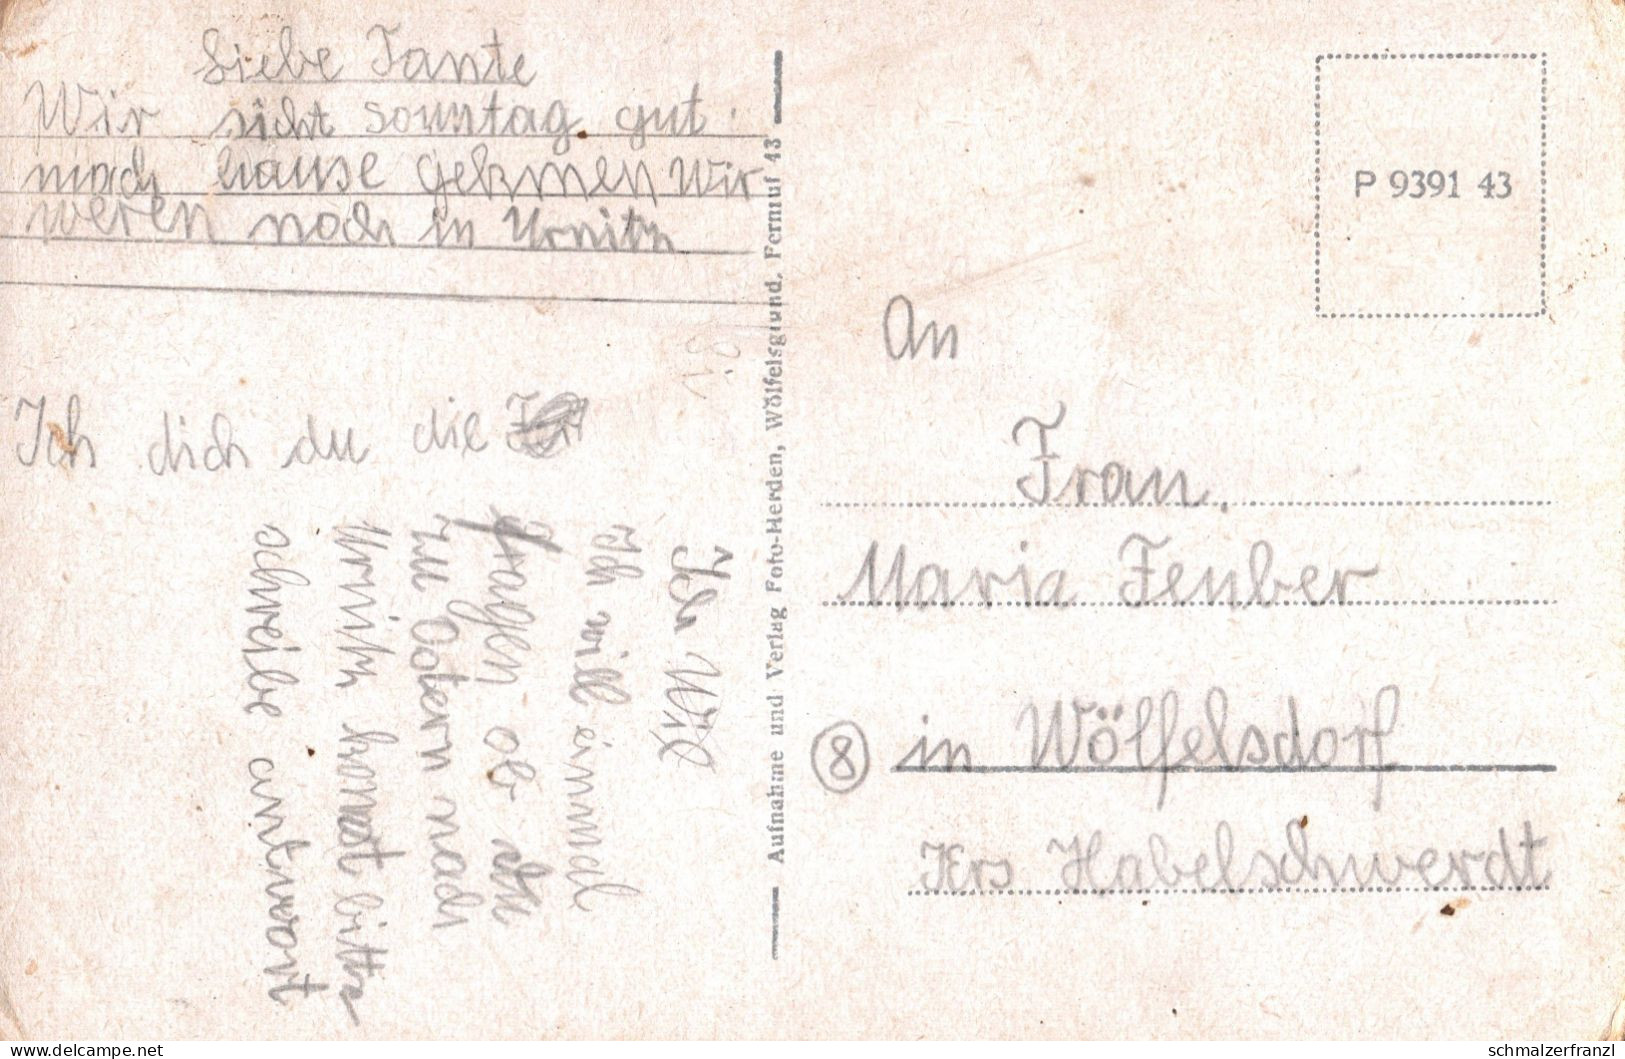 Liebe Tante
Wir sicht sonntag gut.
nach hause gekmen Wir
weren noch in Urnitz
Ich dich du die
Ich will
Ich will einmal
fragen ob du
zu Ostern nach
Urnitz komst bitte
schreibe antwort
Aufnahme und Verlag Foto-Herden, Wölfelsgrund. Fernruf 43
P 9391 43
An
Frau
Maria Feuber
(8) in Wölfelsdorf
Krs Habelschwerdt
schmalzerfranzl
delcampe.net